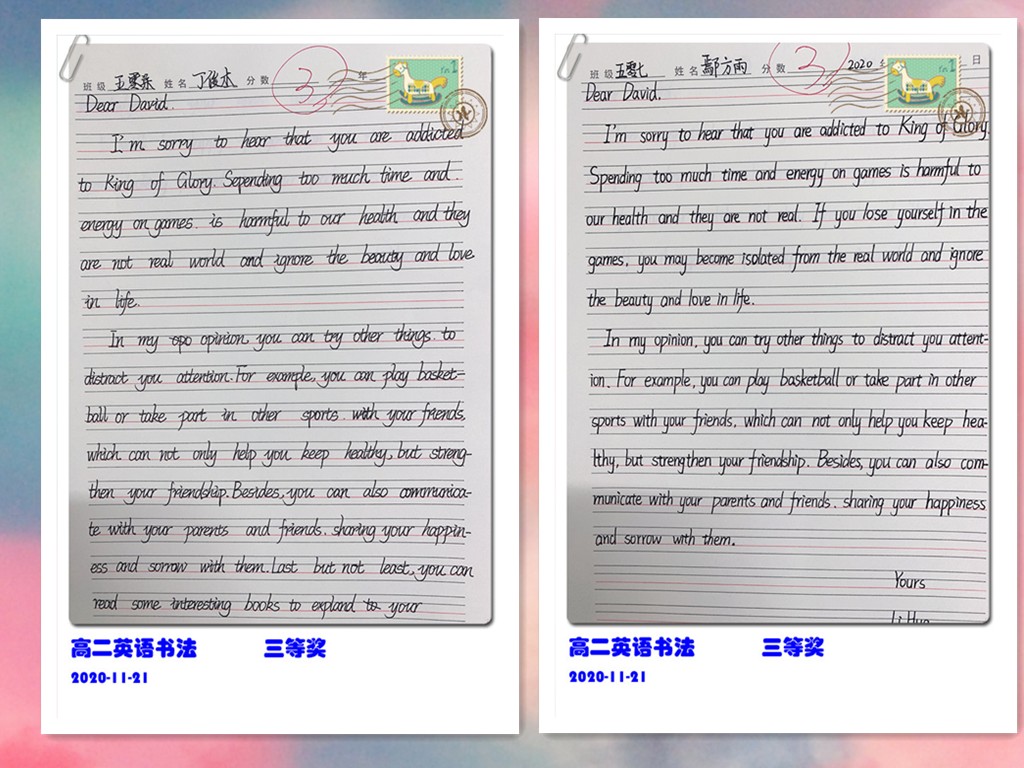 班级 姓名 丁俊杰 分数 3 年
Dear David.
I'm sorry to hear that you are addicted
to King of Glory. Sepending too much time and
energy on games. is harmful to our health and they
are not real world and ignore the beauty and love
in life.
In my opo opinion, you can try other things. to
distract you attention. For example, you can play basket-
ball or take part in other sports. with your friends,
which can not only help you keep healthy, but streng-
then your friendship. Besides, you can also communica-
te with your parents and friends. sharing your happin-
ess and sorrow with them. Last but not least, you can
read some interesting books to expland to your
高二英语书法 三等奖
2020-11-21
班级 姓名 鄢方雨 分数 3 2020 日
Dear David.
I'm sorry to hear that you are addicted to King of Glory.
Spending too much time and energy on games is harmful to
our health and they are not real. If you lose yourself in the
games, you may become isolated from the real world and ignore
the beauty and love in life.
In my opinion, you can try other things to distract you attent-
ion. For example, you can play basketball or take part in other
sports with your friends, which can not only help you keep hea-
lthy, but strengthen your friendship. Besides, you can also com-
municate with your parents and friends. sharing your happiness
and sorrow with them.
Yours
Li Hua
高二英语书法 三等奖
2020-11-21